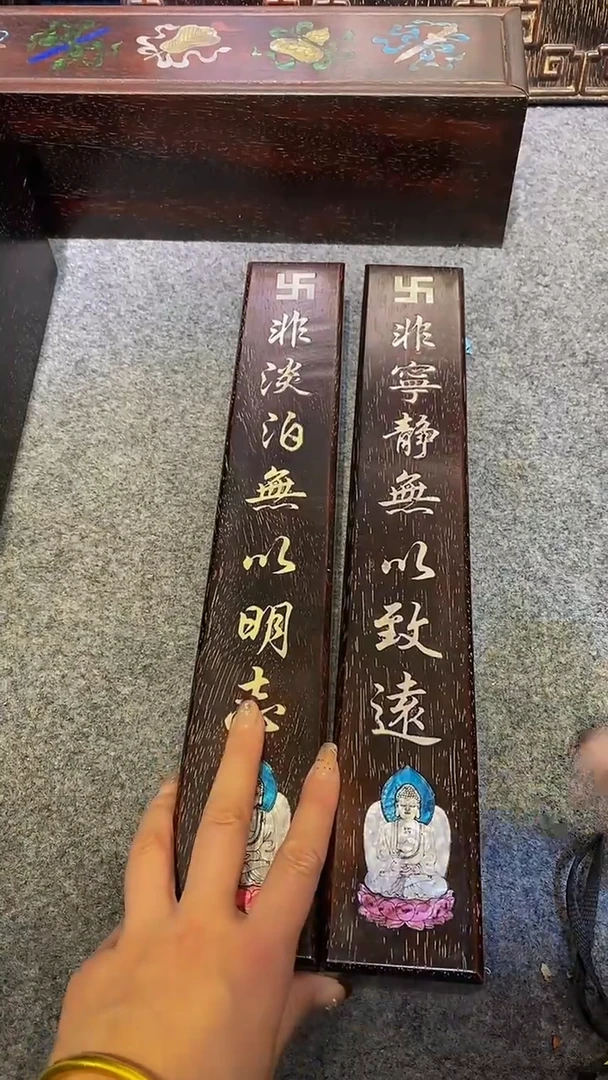 卐非淡泊無以明志
卐非寧静無以致遠